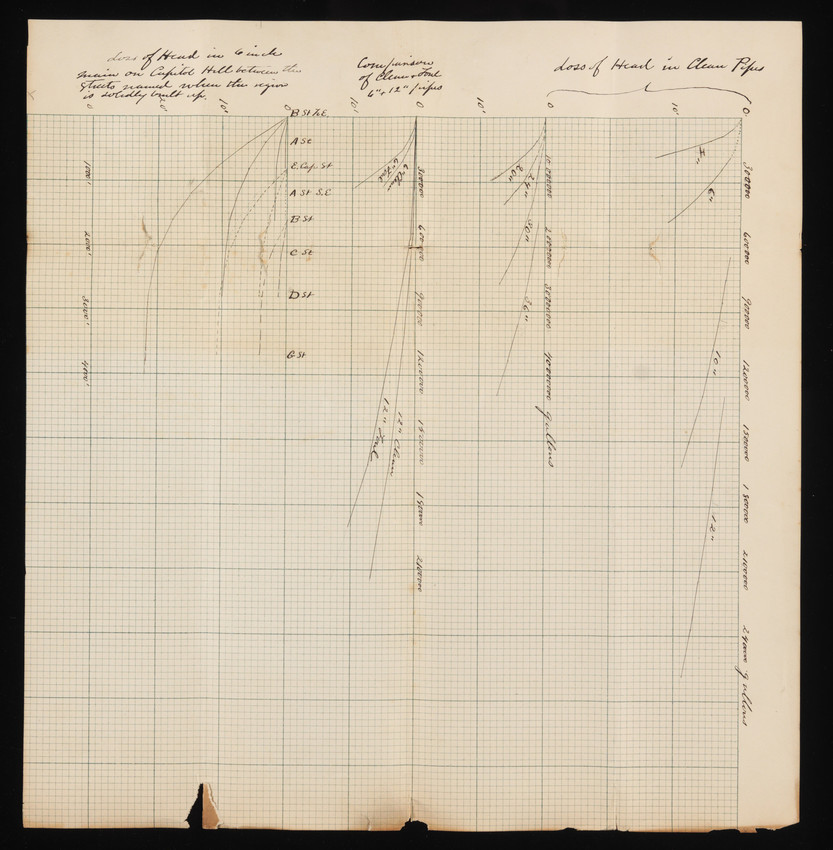 Loss of Head in 6 inch
main on Capitol Hill between the
streets named when the region
is solidly built up.
Comparison
of Clean & Foul
6" & 12" pipes
Loss of Head in Clean Pipes
0
20'
10'
0
10'
0
10'
0
10'
0
B St N.E.
A St
E. Cap. St
A St S.E
B St
C St
D St
G St
1000'
2000'
3000'
4000'
6" Foul
6" Clean
12" Foul
12" Clean
300000
600000
900000
1200000
1500000
180000
2100000
20"
24"
30"
36"
10000000
20000000
30000000
40000000 gallons
4"
6"
10"
12"
300000
600000
900000
1200000
1500000
1800000
2100000
gallons